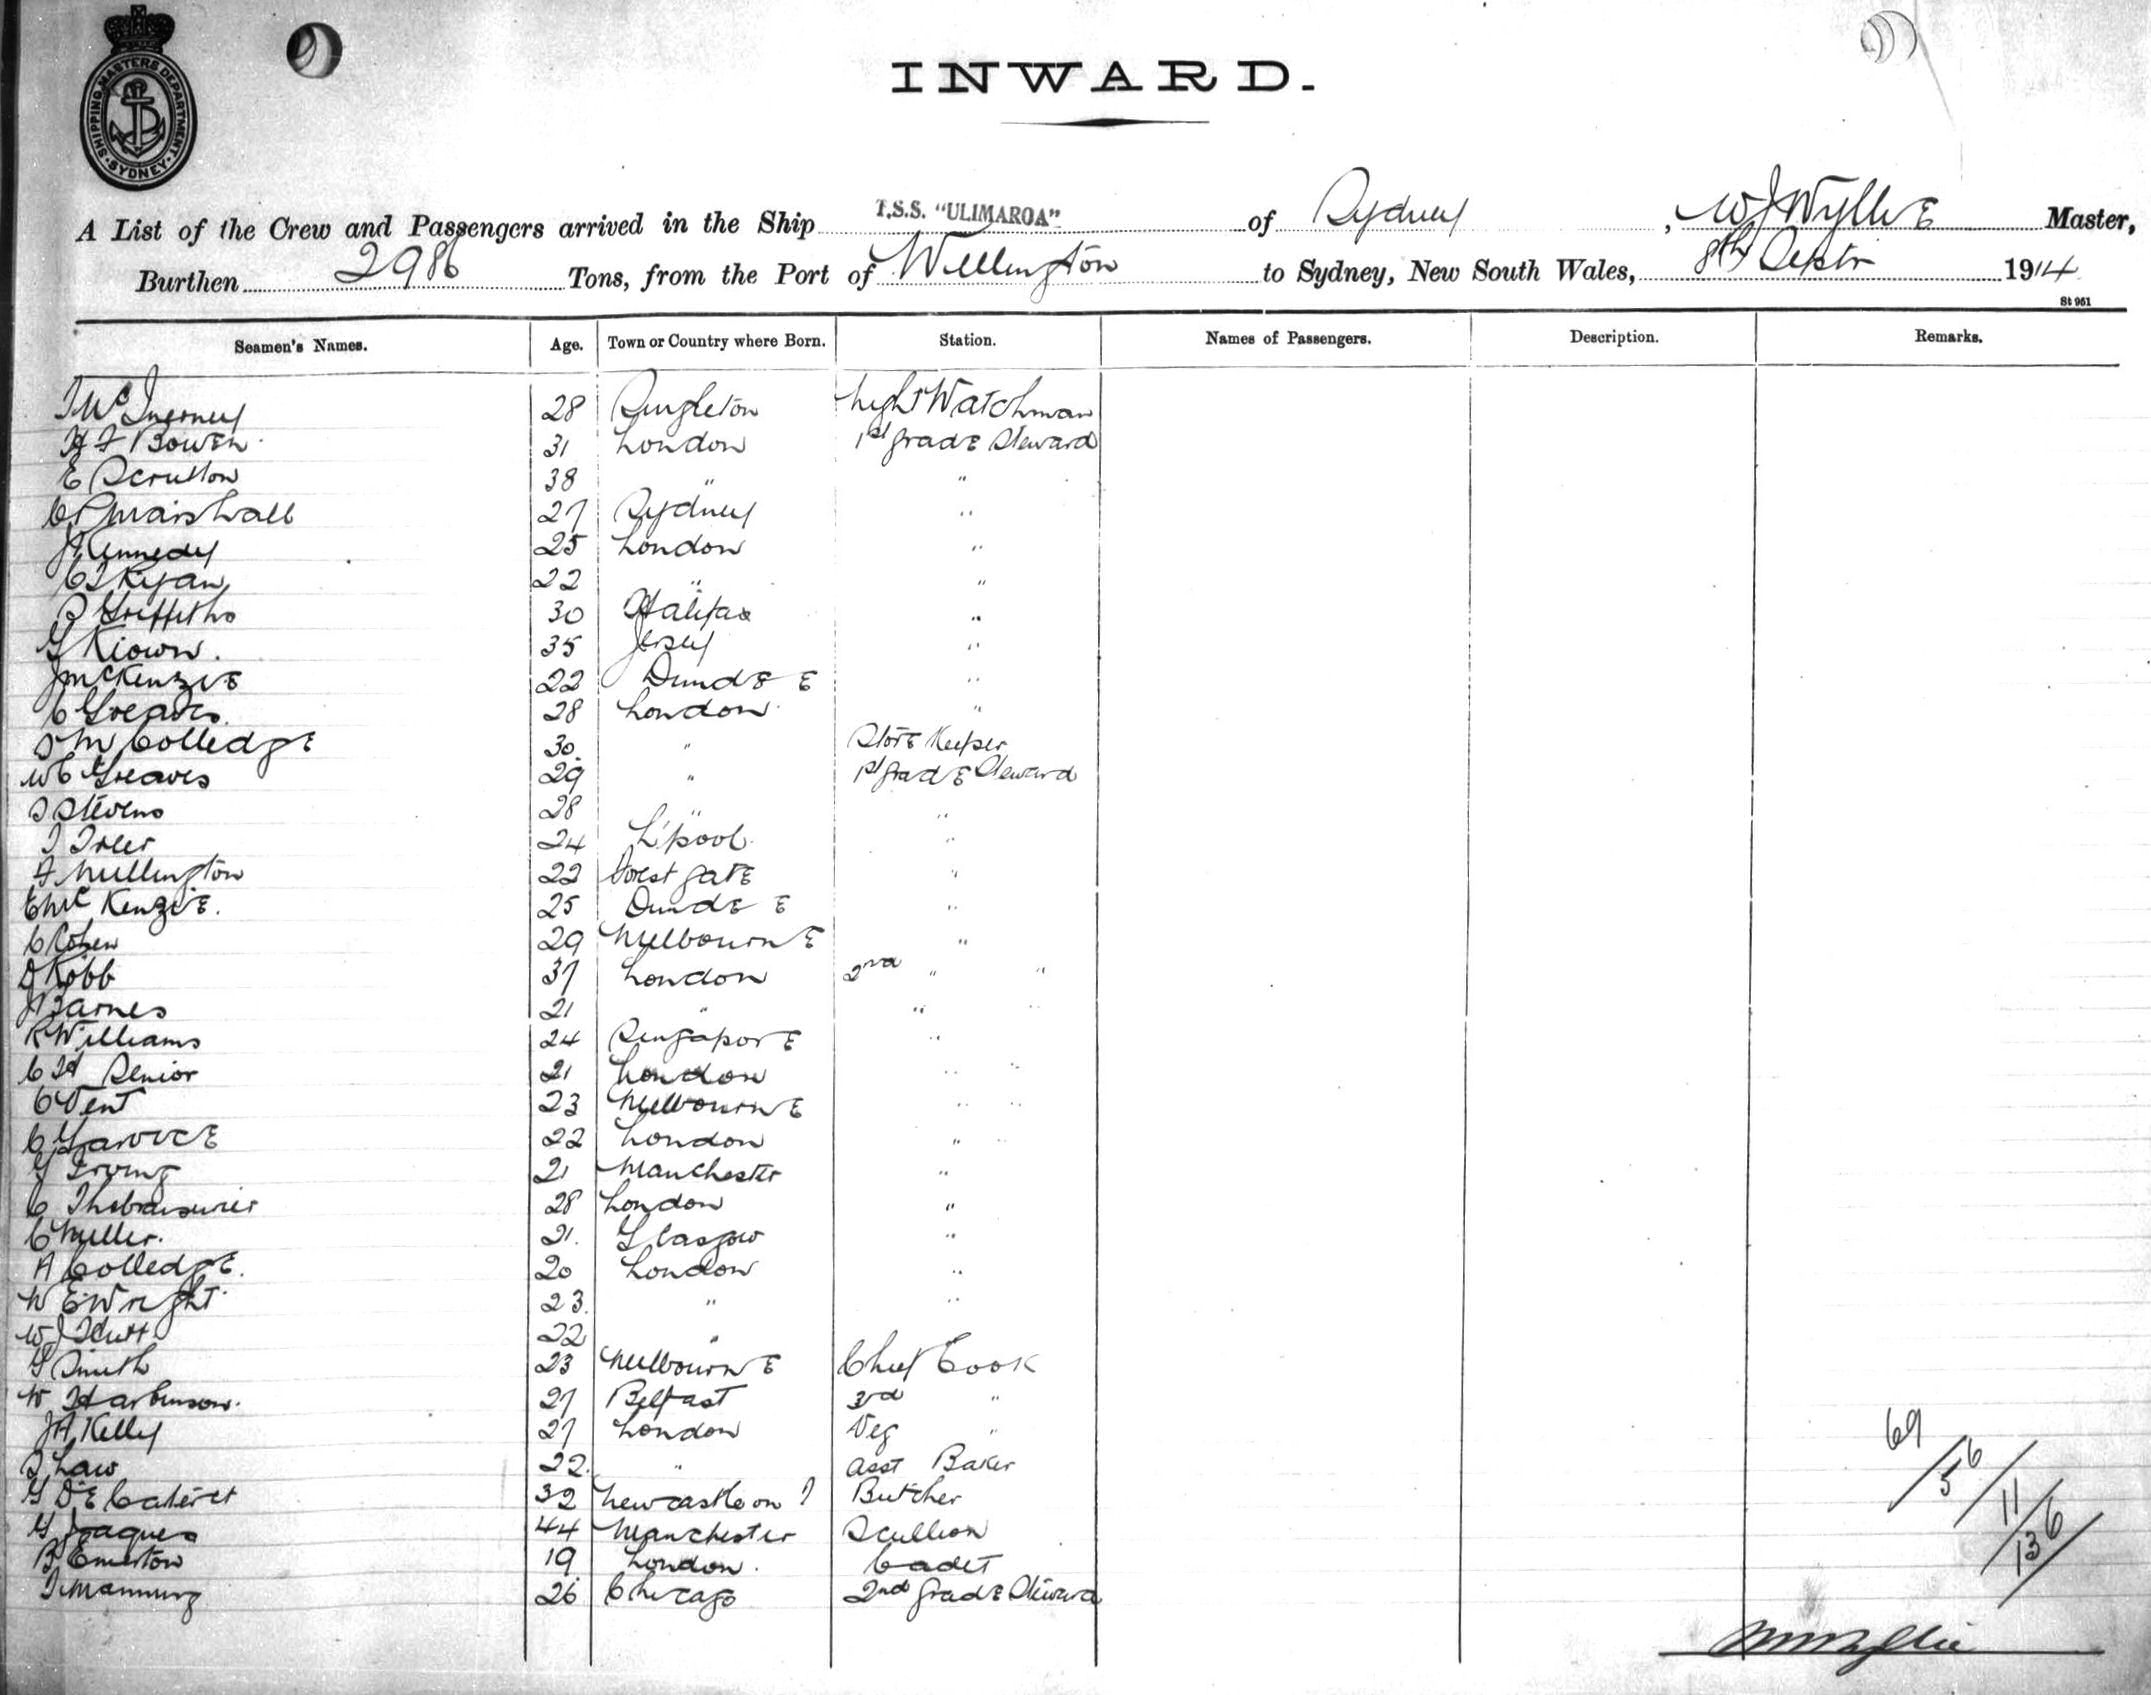 SHIPPING MASTERS DEPARTMENT · SYDNEY ·
INWARD.
A List of the Crew and Passengers arrived in the Ship T.S.S. "ULIMAROA" of Sydney, W J Wyllie Master,
Burthen 2986 Tons, from the Port of Wellington to Sydney, New South Wales, 8th Septr 1914
St 961
Seamen's Names. Age. Town or Country where Born. Station. Names of Passengers. Description. Remarks.
J McInerney 28 Singleton Night Watchman
H F Bowen 31 London 1st grade Steward
E Scrutton 38 " "
C P Marshall 27 Sydney "
J Kennedy 25 London "
C J Ryan 22 " "
S Griffiths 30 Halifax "
G Kiown. 35 Jersey "
J McKenzie 22 Dundee "
C Greaves. 28 London "
S M Colledge 30. " Store Keeper
W C Greaves 29 " 1st grade Steward
S Stevens 28 " "
24 L'pool "
A Millington 22 Forest gate "
C McKenzie. 25 Dundee "
C Cohen 29 Melbourne "
D Robb 37 London 2nd " "
J Barnes 21 " " "
R Williams 24 Singapore "
C H Senior 21 London " "
C Vent 23 Melbourne " "
C Garvice 22 London " "
G Irving 21 Manchester "
C 28 London "
C Miller. 21. Glasgow "
A Colledge. 20 London "
W E Wright 23. " "
W J Hutt 22 " "
G Smith 23 Melbourne Chief Cook
W Harbinson. 27 Belfast 3rd "
J A Kelly 27 London Veg "
S Law 22. " Asst Baker
G De Carteret 32 Newcastle on T Butcher
G Jaques 44 Manchester Scullion
B Emerton 19 London. Cadet
J Manning 26 Chicago 2nd grade Steward
69
/ 56
/ 11
/ 136 /
W J Wyllie